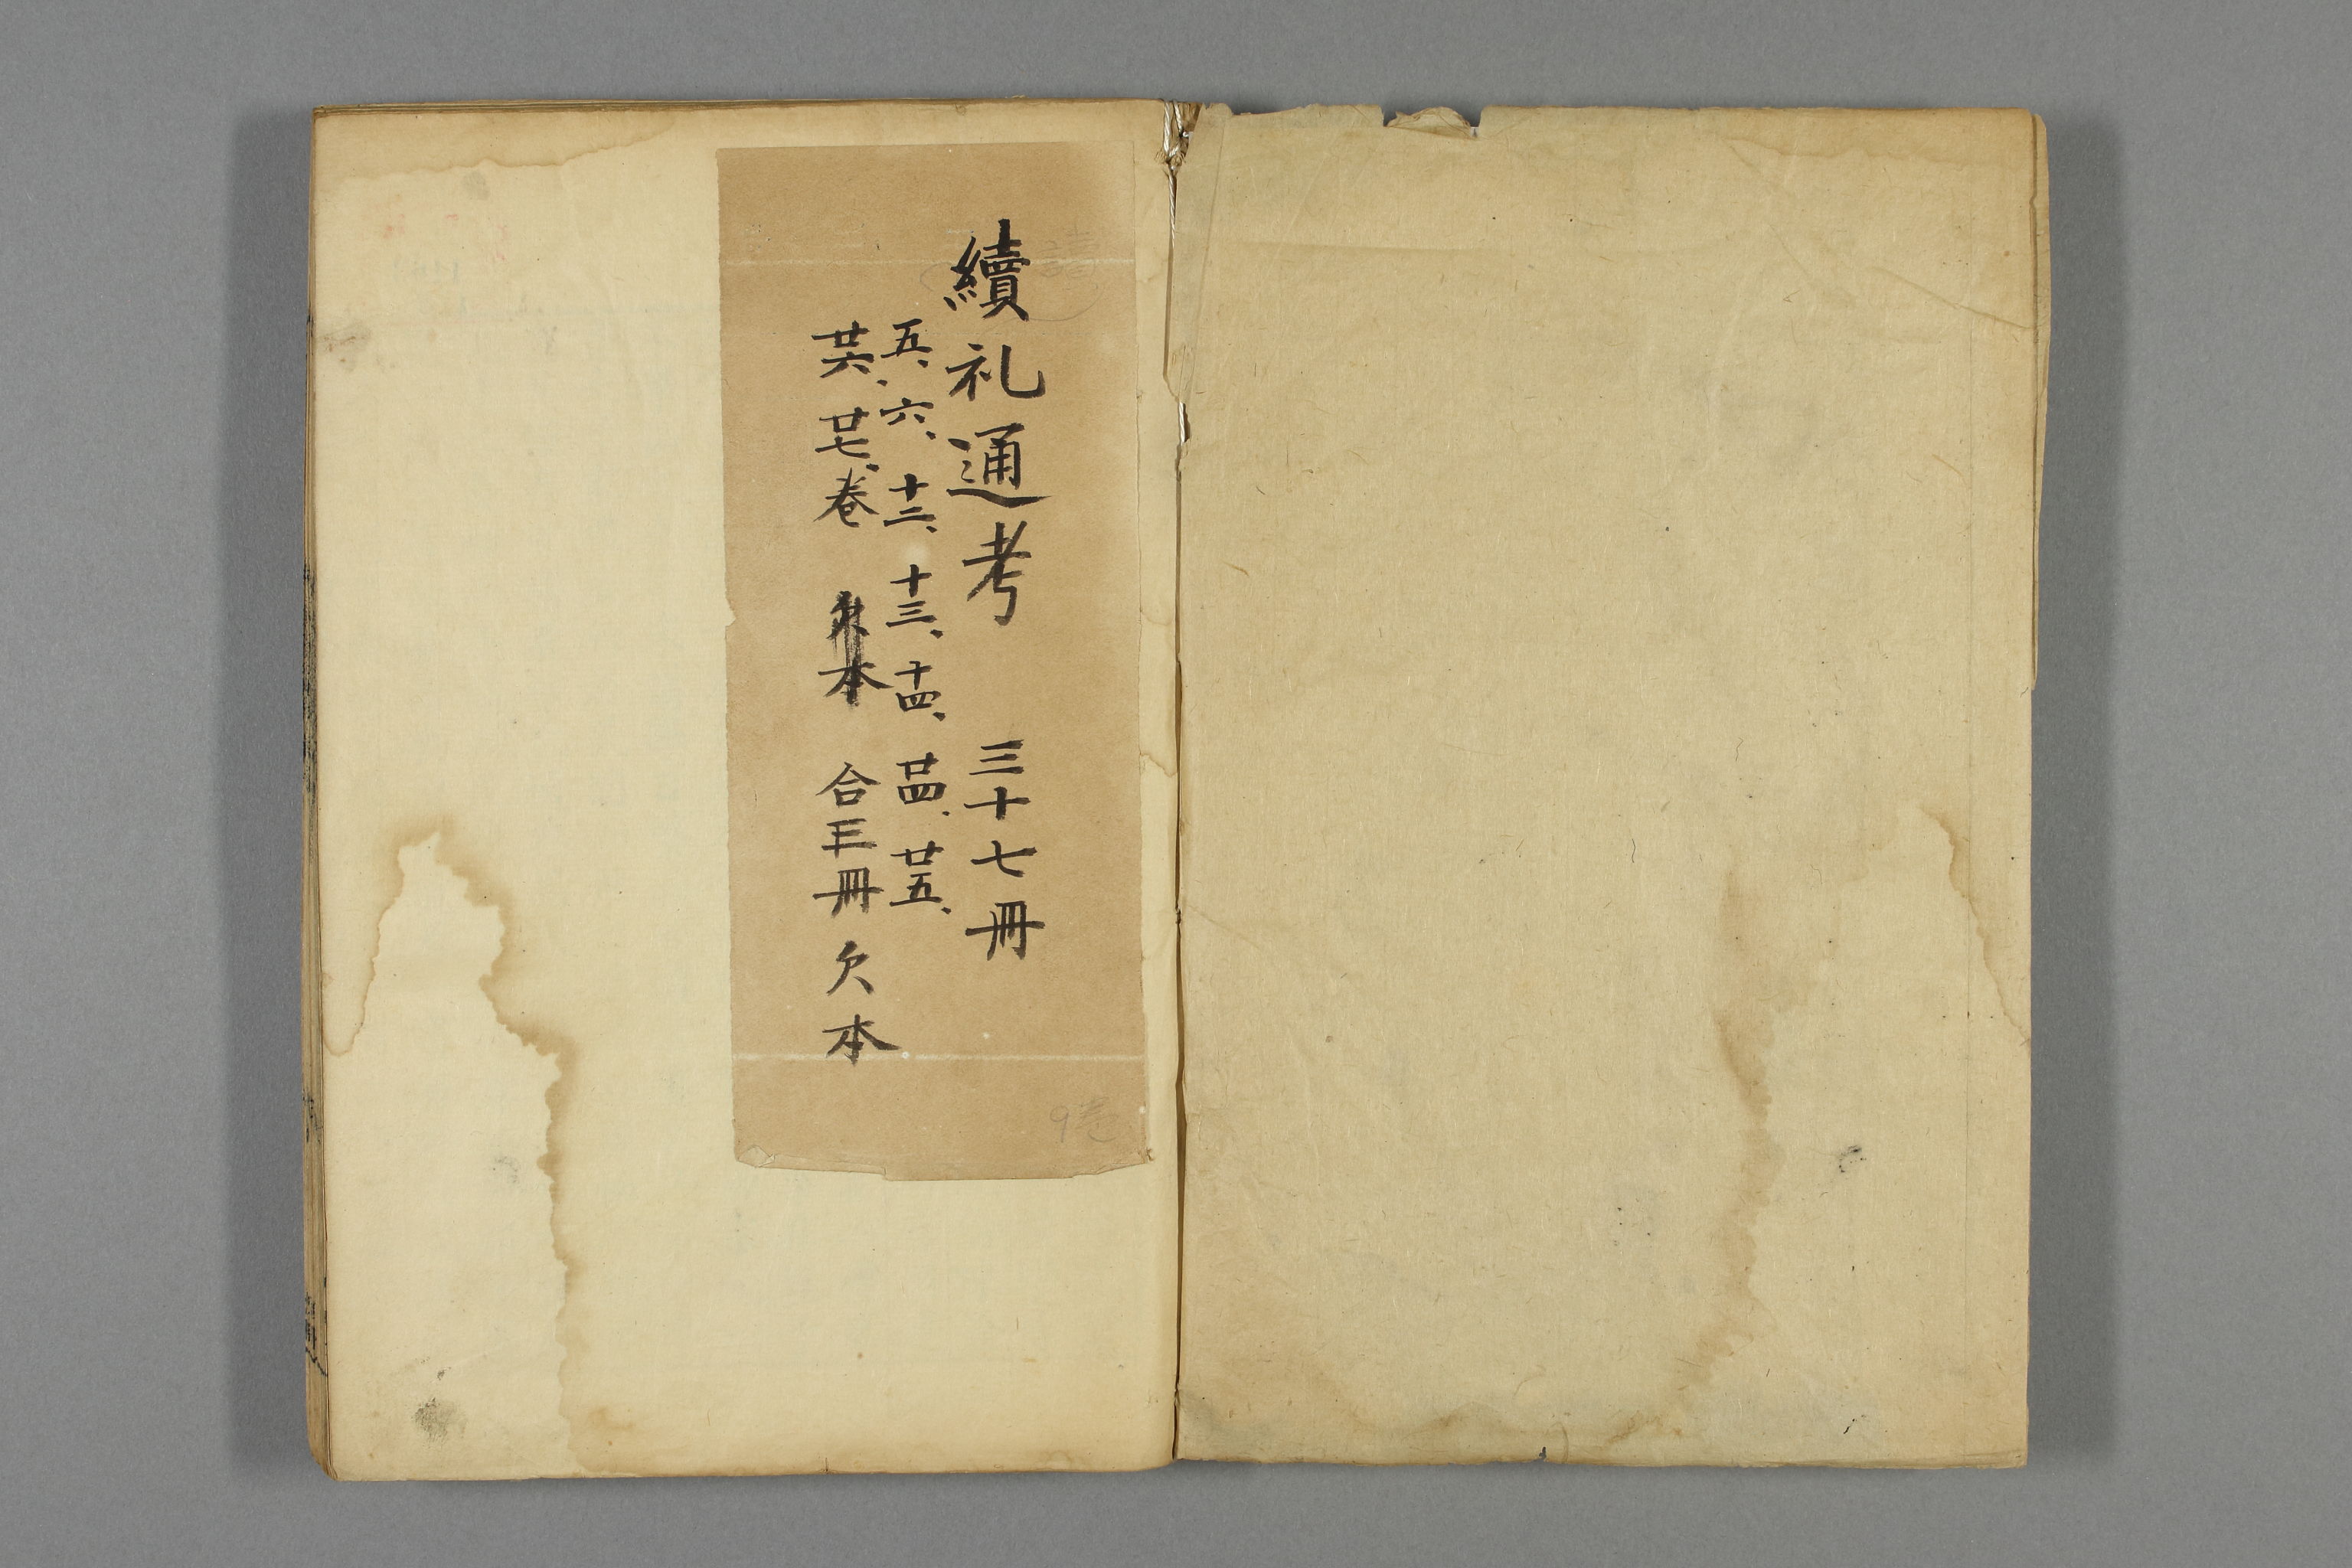 續礼通考　三十七冊
五、六、十二、十三、十四、廿四、廿五、
廿六、廿七、卷　本　合三冊欠本
讀
9巻